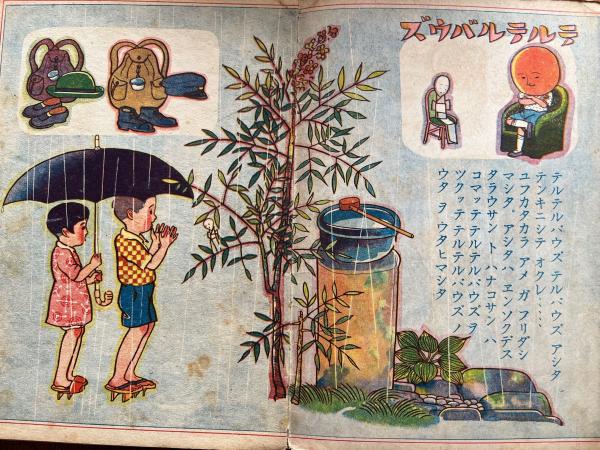 テルテルバウズ
テルテルバウズ テルバウズ アシタ
テンキニシテ オクレ‥‥
ユフカタカラ アメ ガ フリダシ
マシタ。アシタ ハ エンソクデス
タラウサン ト ハナコサン ハ
コマッテテルテルバウズヲ
ツクッテテルテルバウズノ
ウタ ヲ ウタヒマシタ